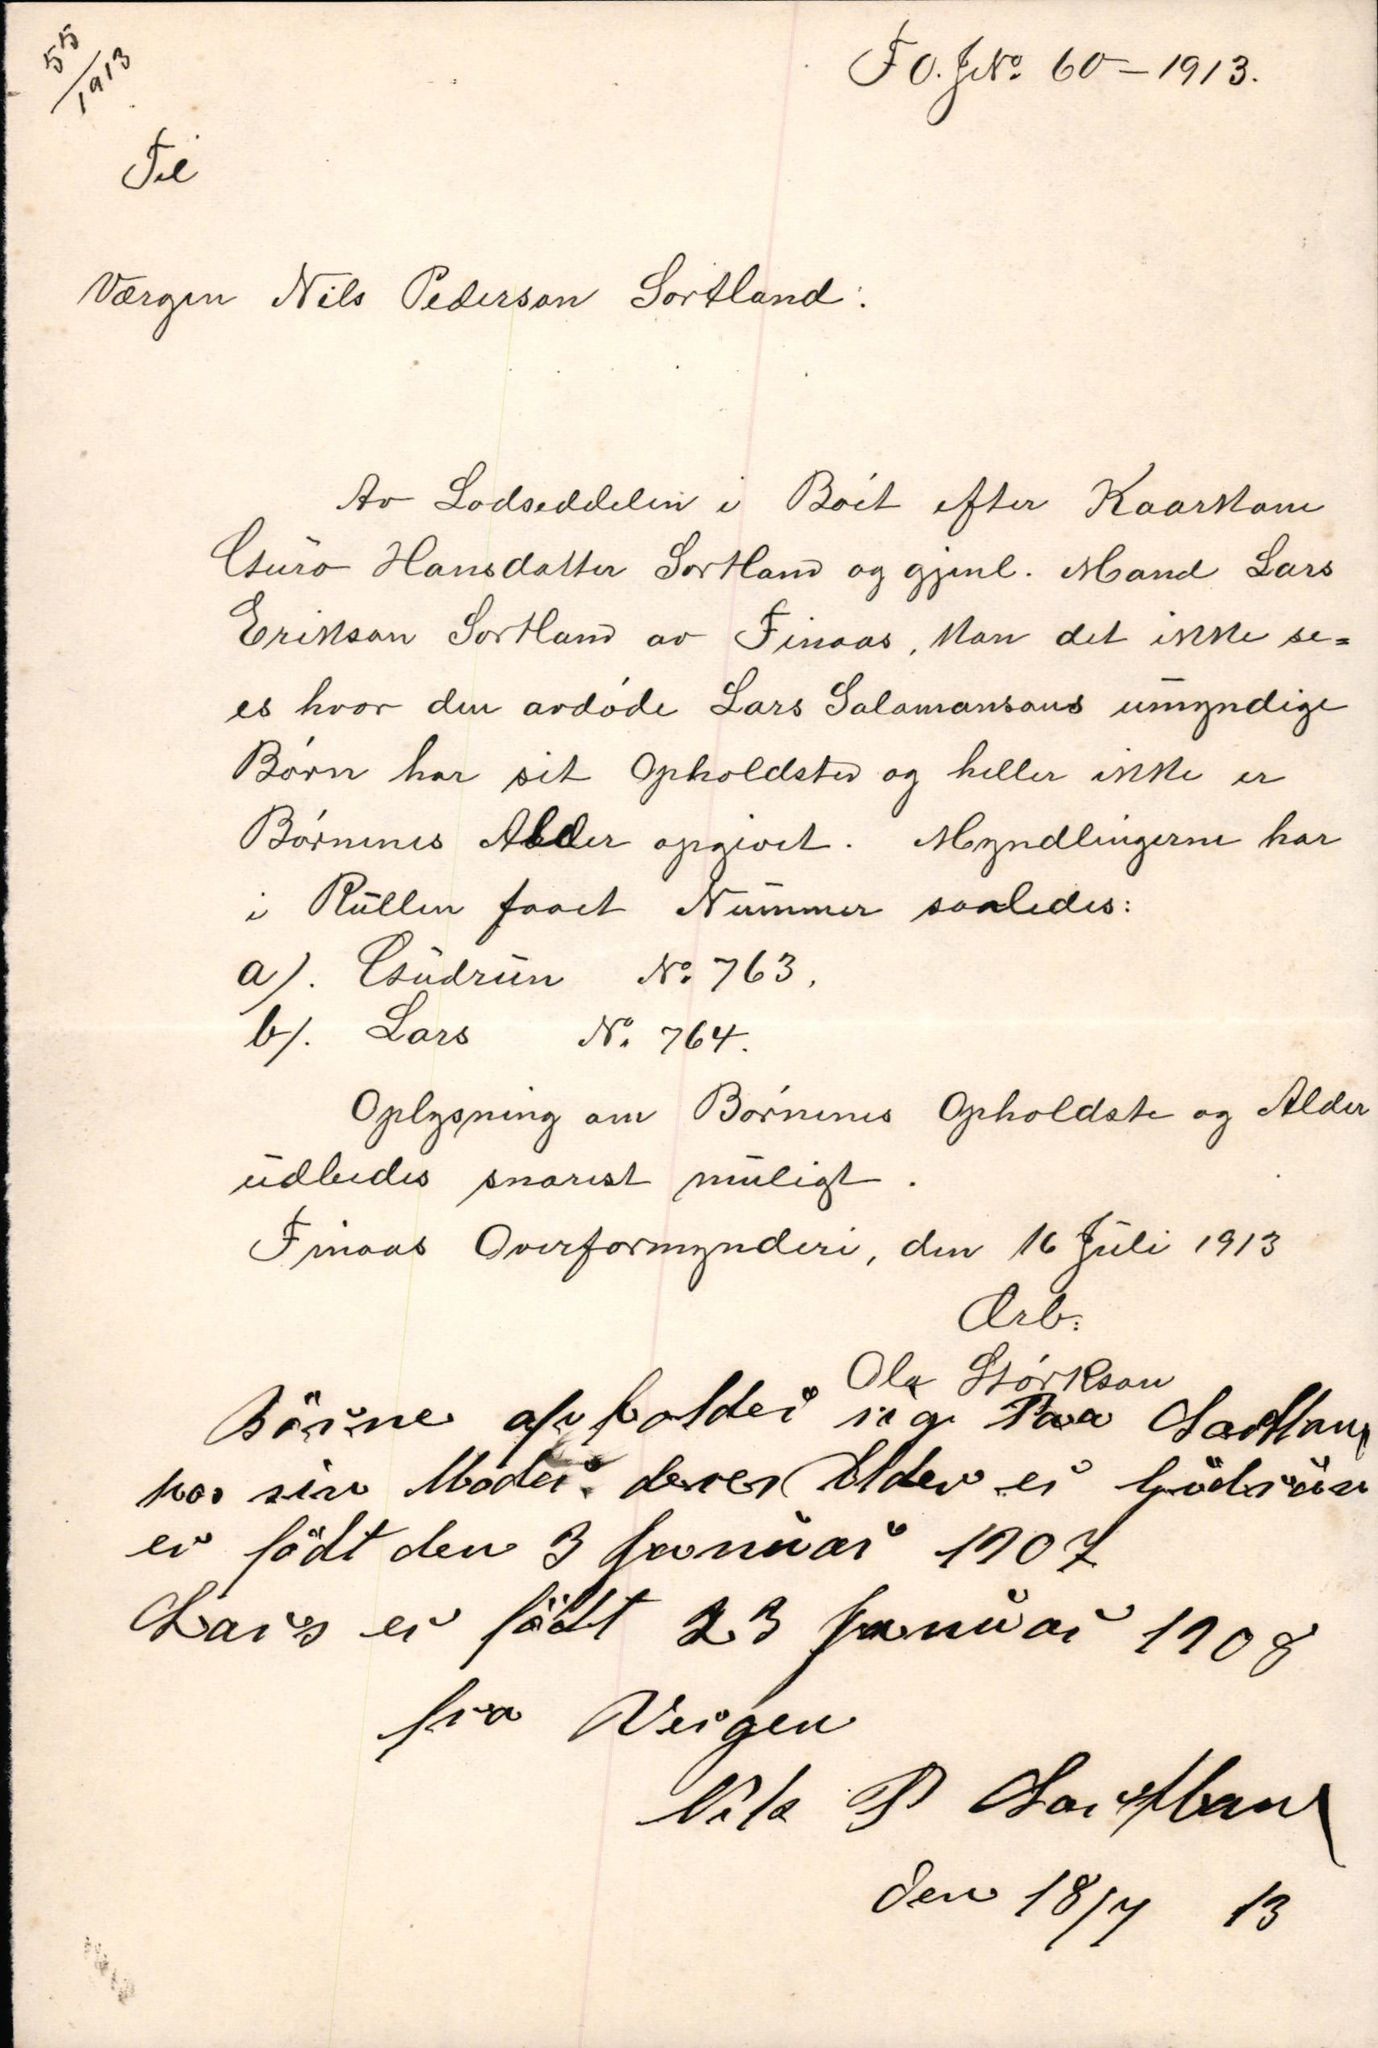 55/1913
F O. J№ 60 – 1913.
Til
Værgen Nils Pederson Sortland:
Av Lodseddelen i Boet efter Kaarkone
Guro Hansdatter Sortland og gjenl. Mand Lars
Erikson Sortland av Finaas, kan det ikke se=
es hvor den avdøde Lars Salamansons umyndige
Børn har sit Opholdsted og heller ikke er
Børnenes Alder opgivet. Myndlingerne har
i Rullen faaet Nummer saaledes:
a). Gudrun № 763.
b). Lars № 764.
Oplysning om Børnenes Opholdste og Alder
udbedes snarest muligt.
Finaas Overformynderi, den 16 Juli 1913
Ærb:
Ola Størkson
Börne opholder sig Paa Sortland
hos sin Moder. deres Alder er Gudrun
er födt den 3 Januar 1907
Lars er födt 23 Januar 1908
fra Vergen
Nils P Sortland
den 18/7 13